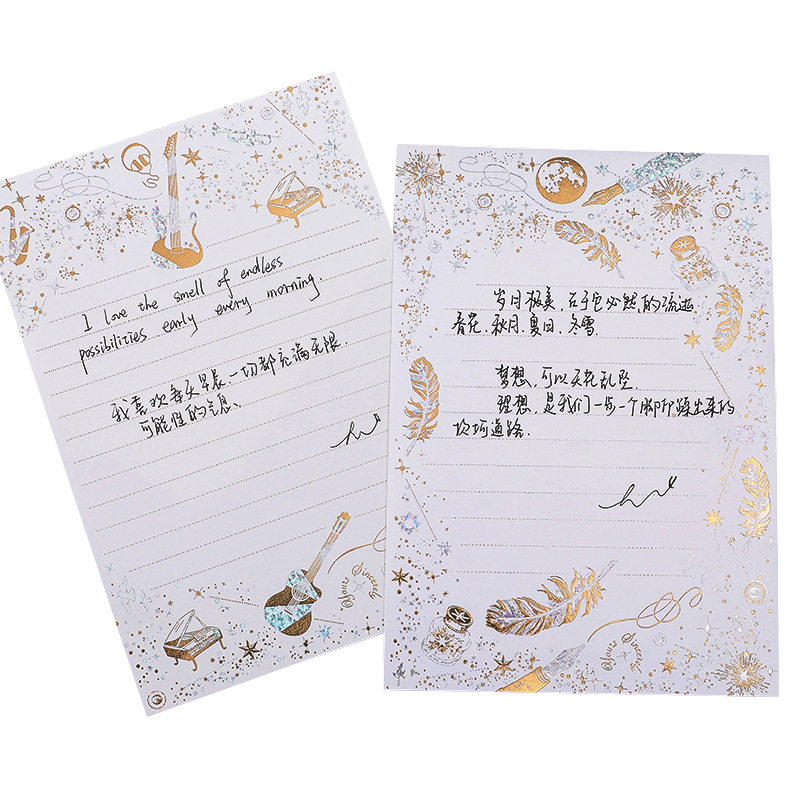 I love the smell of endless
possibilities early every morning.
我喜欢每天早晨一切都充满无限
可能性的气息、
Yours Sincerely
岁月极美,在于它必然的流逝
春花、秋月、夏日、冬雪.
梦想,可以天花乱坠.
理想,是我们一步一个脚印踩出来的
坎坷道路.
Yours Sincerely